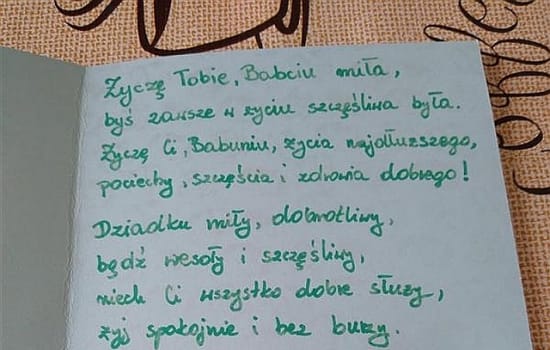 Życzę Tobie, Babciu miła,
byś zawsze w życiu szczęśliwa była.
Życzę Ci, Babuniu, życia najdłuższego,
pociechy, szczęścia i zdrowia dobrego!
Dziadku miły, dobrotliwy,
bądź wesoły i szczęśliwy,
niech Ci wszystko dobre służy,
żyj spokojnie i bez burzy.